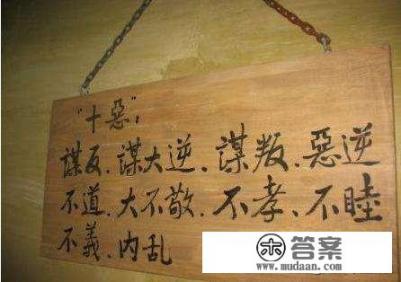 "十惡":
謀反、謀大逆、謀叛、惡逆
不道、大不敬、不孝、不睦
不義、内乱
答案
www.mudaan.com